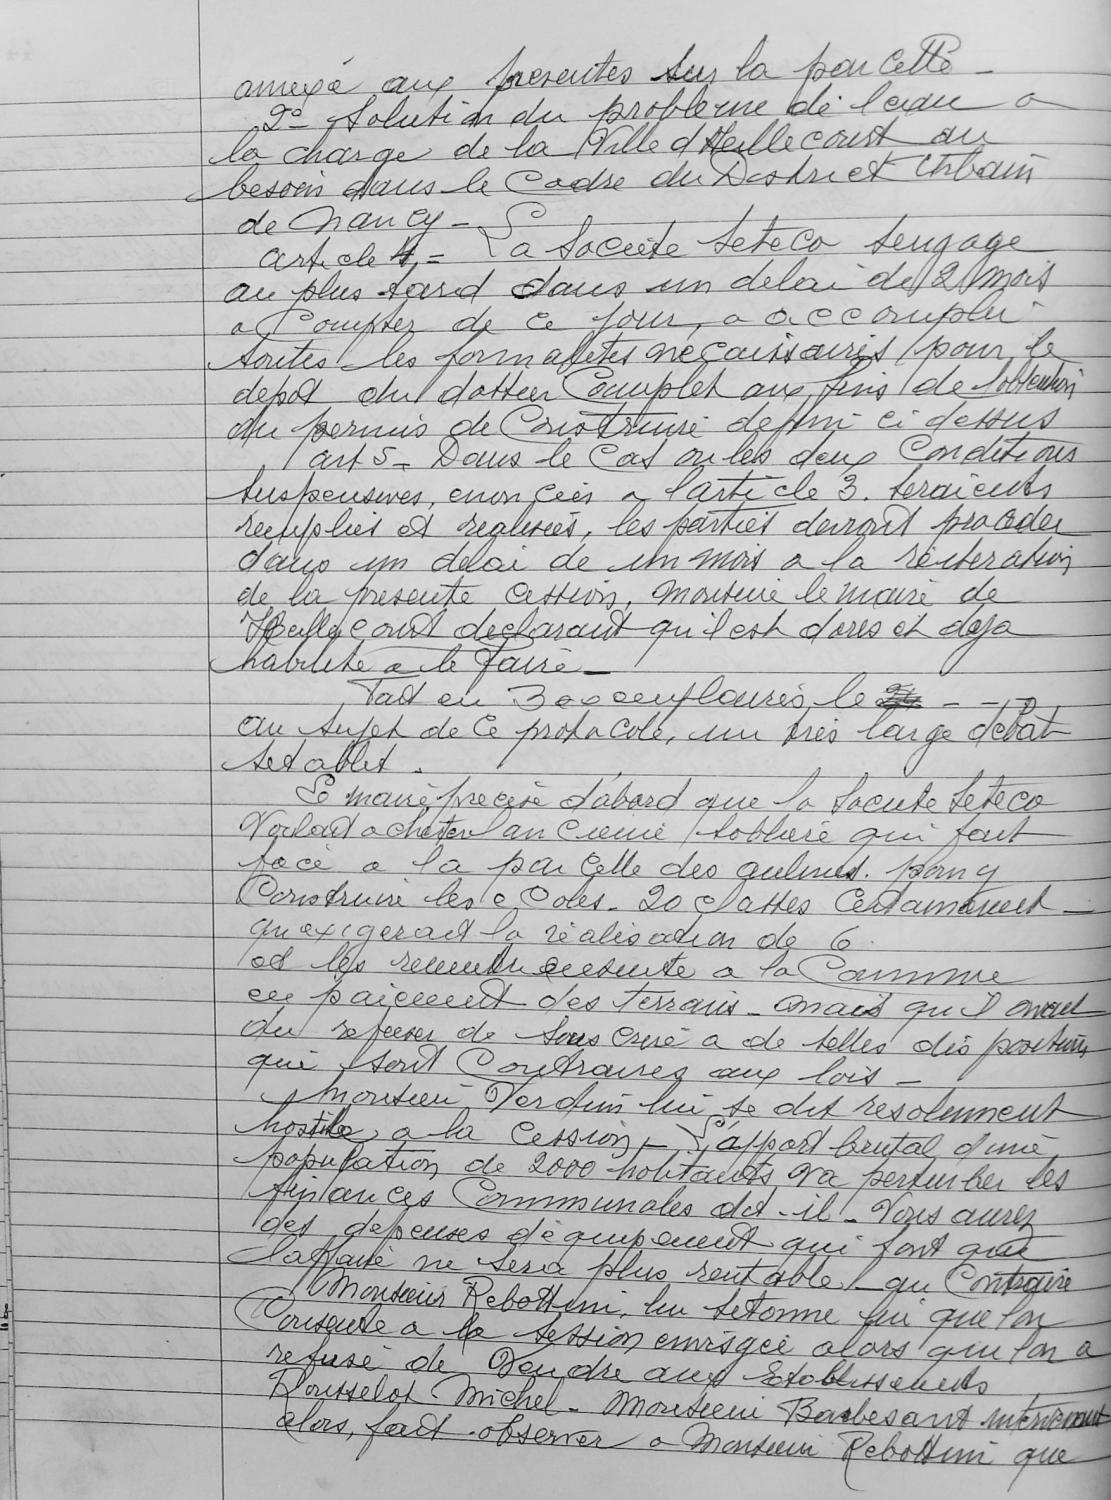 annexé aux presentes sur la parcelle -
2° - Solution du problème de l'eau a
la charge de la Ville d'Heillecourt au
besoin dans le Cadre du District Urbain
de Nancy -
article 4, = La Société Seteco sengage
au plus tard dans un delai de 2 mois
a Compter de ce jour, a accomplir
toutes les formalités neçaissaires pour le
depot du dossier Complet aux fins de lobtention
du permis de Construire defini ci dessus
art 5 - Dans le Cas ou les deux Conditions
suspensives, enonçées a larticle 3. seraients
remplies et realisées, les parties devront proceder
dans un delai de un mois a la réiteration
de la presente cession, monsieur le maire de
Heillecourt declarant qu'il est dores et deja
habilité a le faire -
Fait en 3 exemplaires, le - - -
au sujet de ce protocole, un très large débat
setablit.
Le maire precise d'abord que la Societe Seteco
Voulait acheter lancienne sabliere qui fait
face a la parcelle des aulnes. pour y
Construire les ecoles - 20 classes Certainement -
qu'exigerait la réalisation de 6
et les remettre ensuite a la Commune
en paiement des terrains - mais qu'il avait
du refuser de souscrire a de telles dispositions
qui sont Contraires aux lois -
Monsieur Verdun lui se dit resolument
hostile a la cession - L'apport brutal d'une
population de 2000 habitants va perturber les
finances Communales dit-il - Vous aurez
des depenses d'equipement qui font que
laffaire ne sera plus rentable - au Contraire
Monsieur Rebottini, lui setonne lui que lon
Consente a la session envisgée alors que lon a
refusé de Vendre aux Etablissements
Rousselot Michel - Monsieur Barbesant intervenant
alors, fait observer a Monsieur Rebottini que